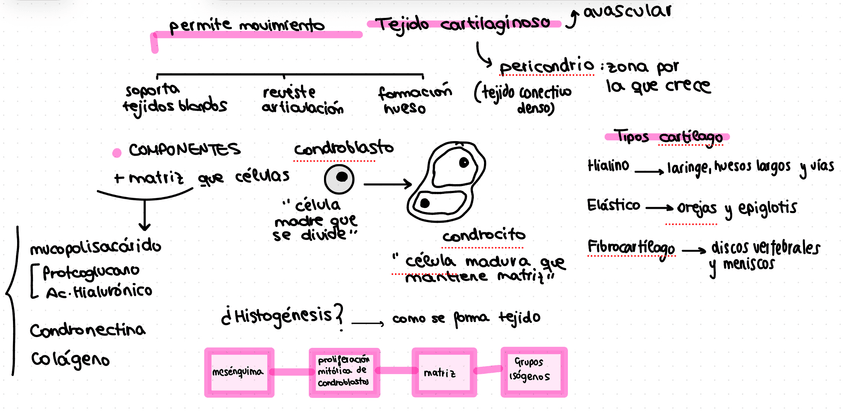 permite movimiento
Tejido cartilaginoso
avascular
pericondrio : zona por
la que crece
(tejido conectivo
denso)
soporta
tejidos blandos
reviste
articulación
formación
hueso
COMPONENTES
+ matriz que células
mucopolisacárido
Proteoglucano
Ac. Hialurónico
Condronectina
Colágeno
condroblasto
"célula
madre que
se divide"
condrocito
"célula madura que
mantiene matriz"
Tipos cartílago
Hialino → laringe, huesos largos y vías
Elástico → orejas y epiglotis
Fibrocartílago → discos vertebrales
y meniscos
¿Histogénesis? → como se forma tejido
mesénquima
proliferación
mitótica de
condroblastos
matriz
Grupos
isógenos